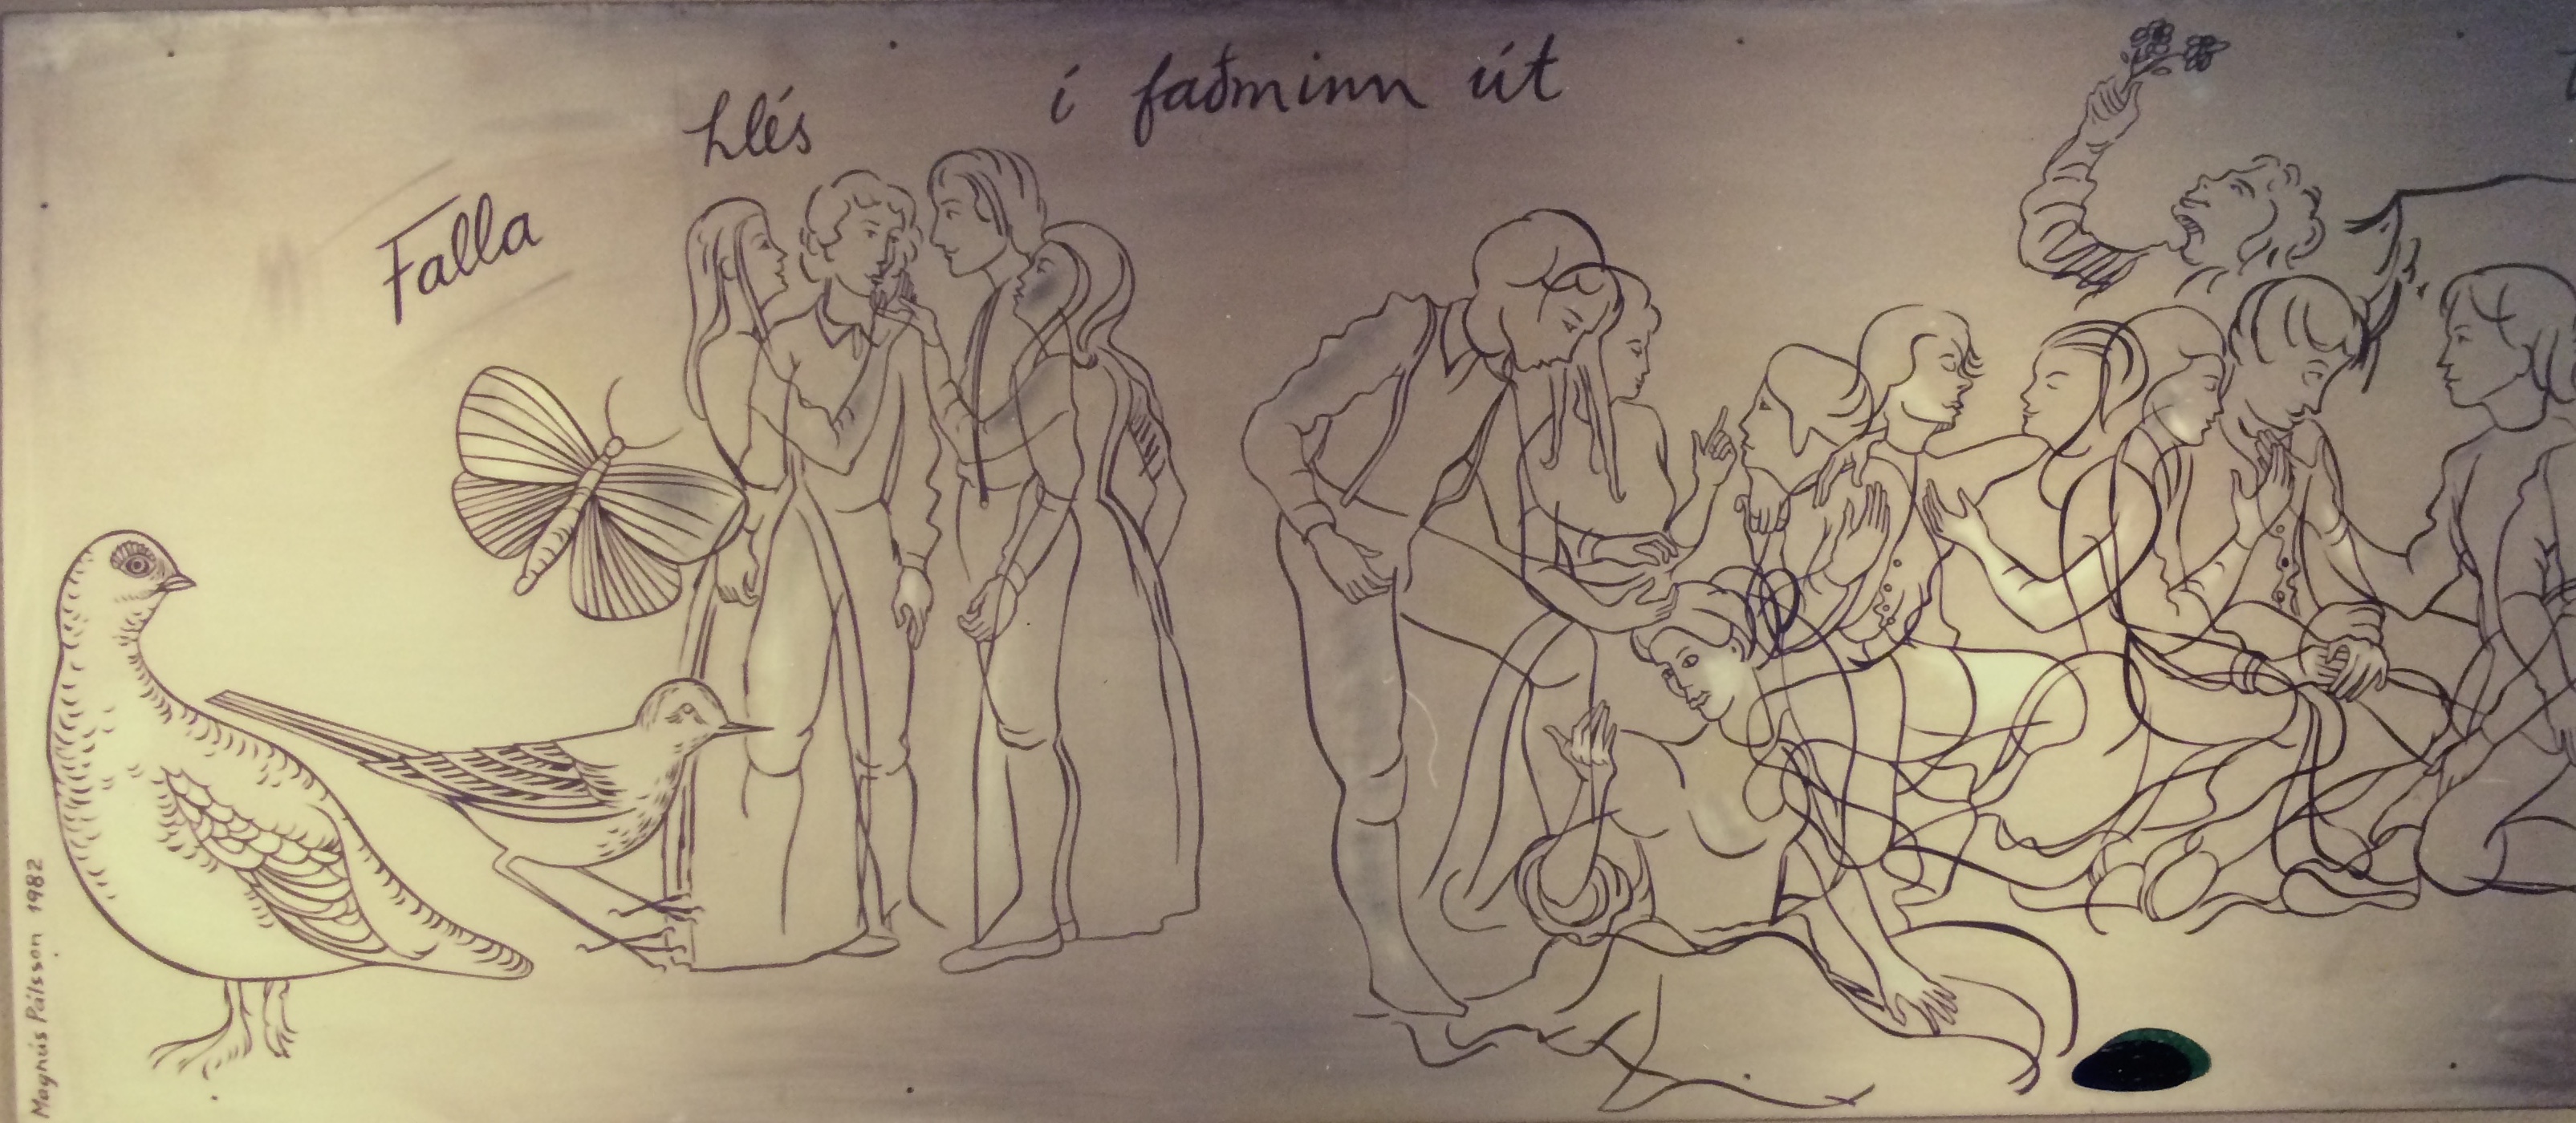 Falla
hlés
í faðminn út
Magnús Pálsson 1982